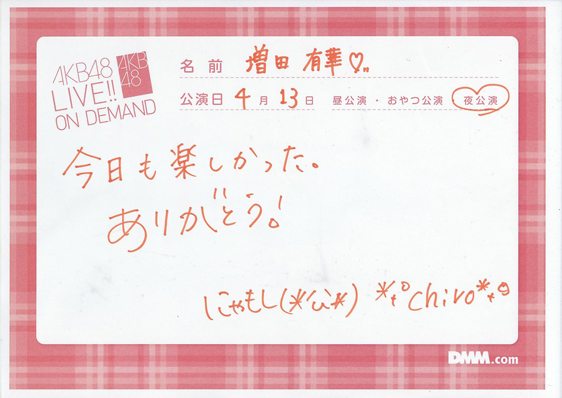 AKB48
LIVE!!
ON DEMAND
AKB
48
名前 増田 有華♡
公演日 4月 13日 昼公演・おやつ公演・夜公演
今日も楽しかった。
ありがとう!
にゃもし(*´ω`*) *+°chiro*+°
DMM.com